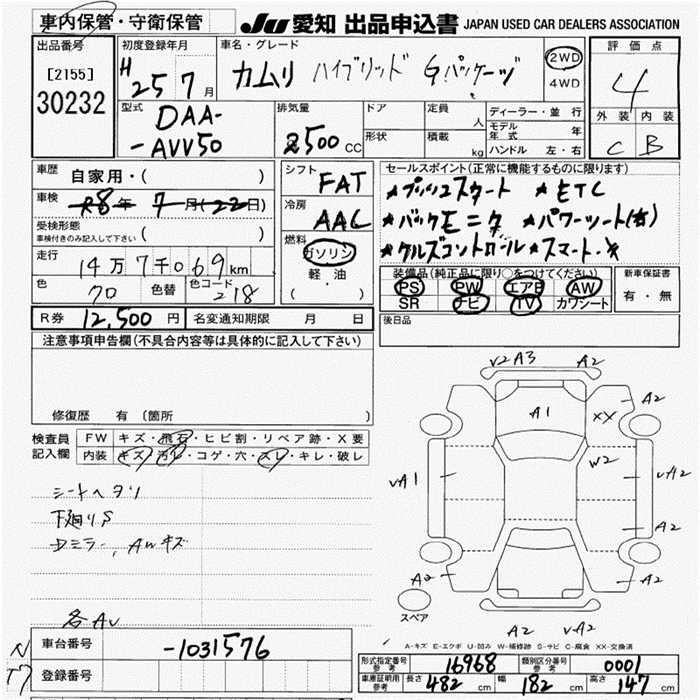 車内保管・守衛保管
JU 愛知 出品申込書 JAPAN USED CAR DEALERS ASSOCIATION
出品番号
[2155]
30232
初度登録年月
H 25 7 月
車名・グレード
カムリ ハイブリッド Gパッケージ
2WD
4WD
評価点
4
外装 内装
C B
型式
DAA-
-AVV50
排気量
2500 CC
ドア
形状
定員 人
積載 kg
ディーラー・並行
モデル年式 年
ハンドル 左・右
車歴
自家用・( )
車検
R8年 7月(22日)
受検形態
車検付きのみ記入して下さい ( )
走行
14万7千069km
色 70 色替 色コード 218
シフト
FAT
冷房
AAC
燃料
ガソリン
軽油
( ・ )
セールスポイント(正常に機能するものに限ります)
★プッシュスタート ★ETC
★バックモニタ ★パワーシート(右)
★クルーズコントロール ★スマート・キ
装備品(純正品に限り○をつけてください)
PS PW エアB AW
SR ナビ TV カワシート
新車保証書
有・無
後日品
R券 12,500 円 名変通知期限 月 日
注意事項申告欄(不具合内容等は具体的に記入して下さい)
修復歴 有 (箇所 )
検査員記入欄
FW キズ・飛石・ヒビ割・リペア跡・X要
内装 キズ・汚レ・コゲ・穴・スレ・キレ・破レ
シートヘタリ
下廻りS
ドミラー, AWキズ
各AU
V2A3 A2
A1
XX
A2
W2
VA1
VA2
A2
A2
A2
A2 VA2
スペア
A-キズ E-エクボ U-凹み W-補修跡 S-サビ C-腐食 XX-交換済
車台番号
-1031576
登録番号
形式指定番号参考 16968 類別区分番号参考 0001
車庫証明用参考 長さ 482 cm 幅 182 cm 高さ 147 cm